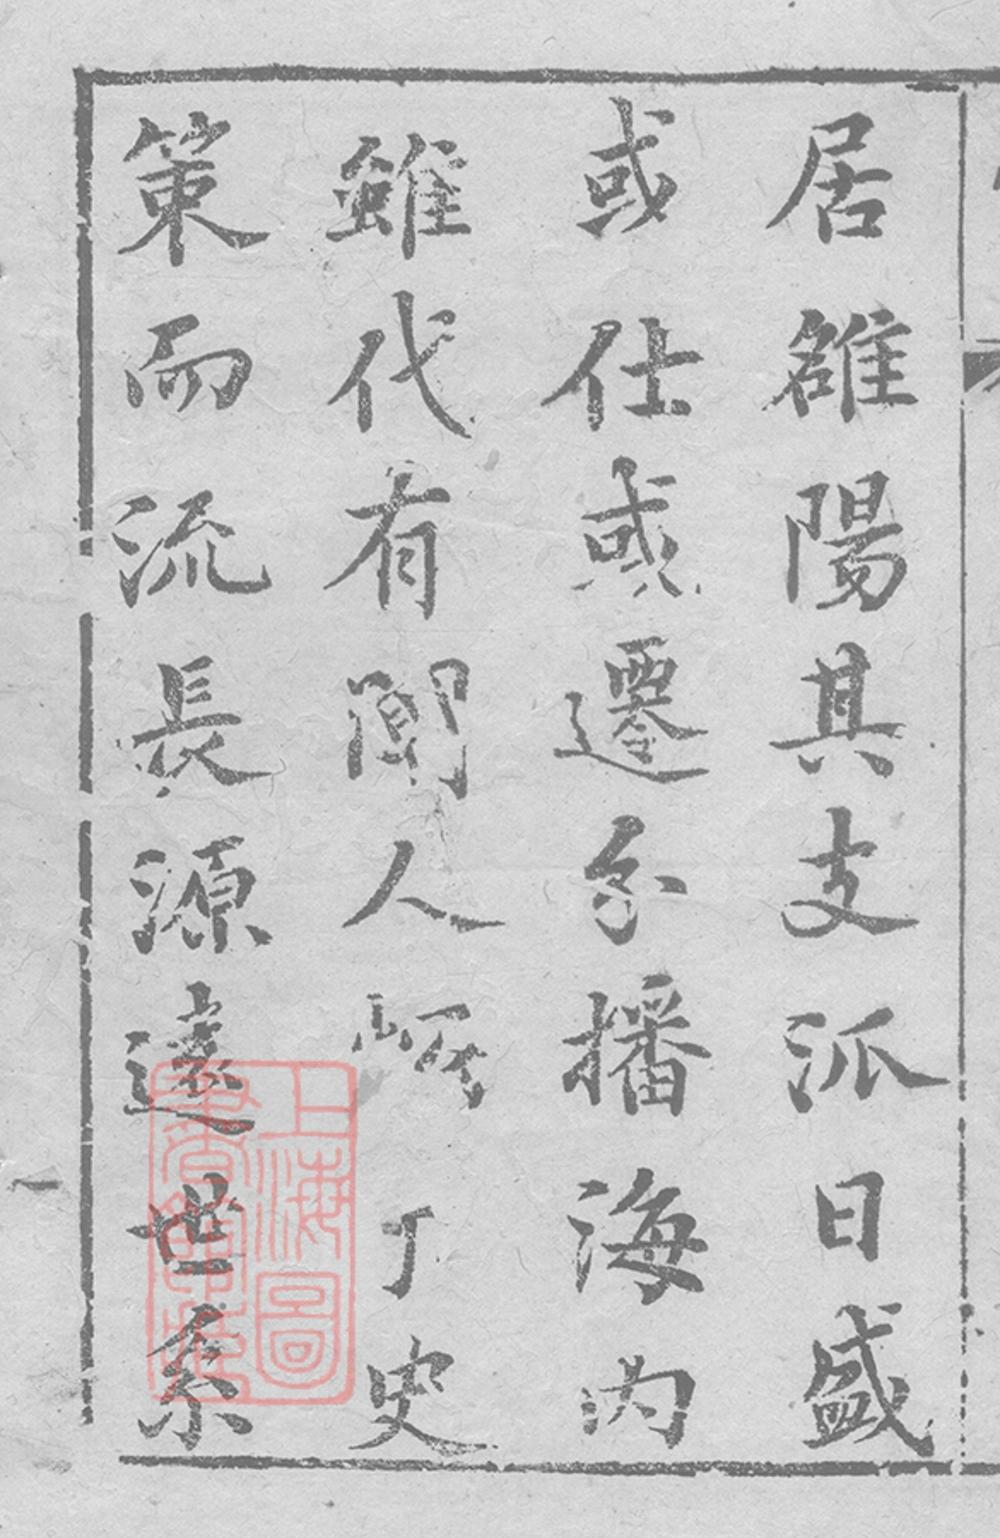 居雒陽其支派日盛
或仕或遷分播海内
雖代有聞人炳于史
策而流長源遠世系
上海圖
書館藏